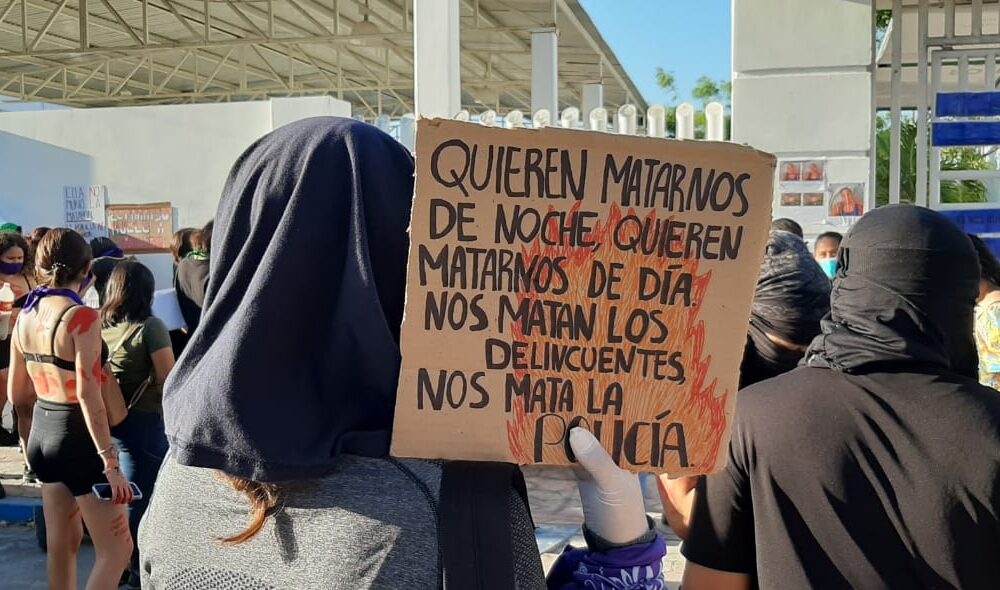 QUIEREN MATARNOS
DE NOCHE, QUIEREN
MATARNOS DE DÍA.
NOS MATAN LOS
DELINCUENTES,
NOS MATA LA
POLICÍA.
ELLA NO